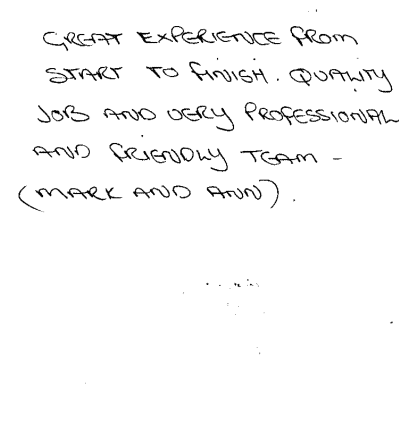 GREAT EXPERIENCE FROM
START TO FINISH. QUALITY
JOB AND VERY PROFESSIONAL
AND FRIENDLY TEAM -
(MARK AND ANN).